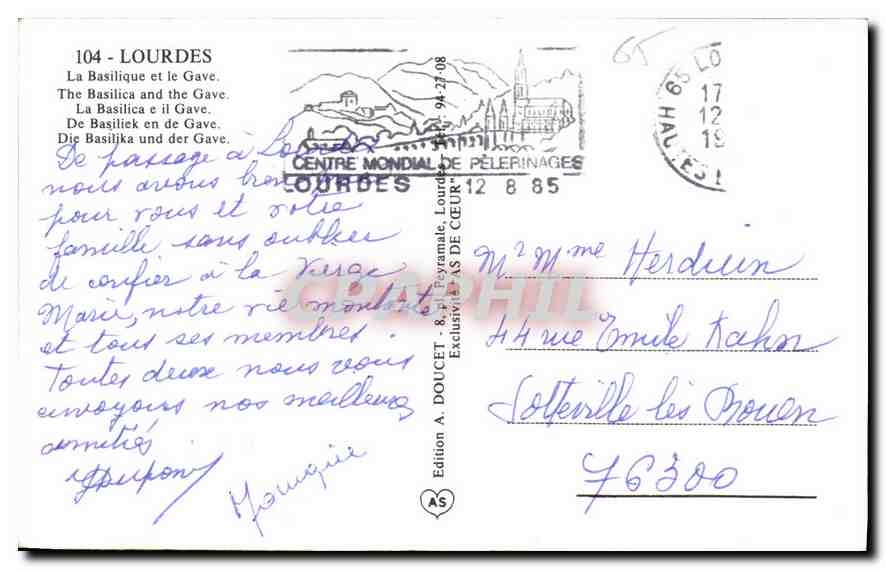 104 - LOURDES
La Basilique et le Gave.
The Basilica and the Gave.
La Basilica e il Gave.
De Basiliek en de Gave.
Die Basilika und der Gave.
De passage à Lourdes
nous avons bien
pour vous et votre
famille sans oublier
de confier à la Vierge
Marie, notre vie montante
et tous ses membres.
Toutes deux nous vous
envoyons nos meilleures
amitiés
CENTRE MONDIAL DE PÈLERINAGES
LOURDES 12 8 85
65
65 LO
17
12
19
HAUTES
Edition A. DOUCET - 8, pl. Peyramale, Lourdes - Tél. : 94-27-08
Exclusivité "AS DE CŒUR"
AS
CPAPHIL
Mr Mme Herduin
44 rue Emile Kahn
Sotteville lès Rouen
76300